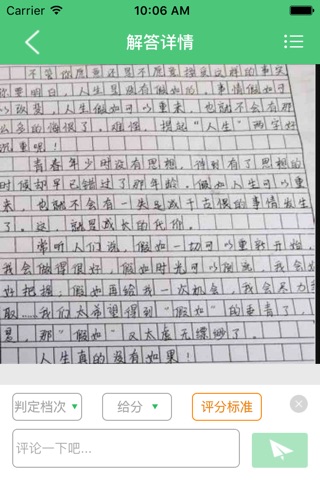 Carrier 10:06 AM
解答详情
不管你愿意还是不愿意接受这样的事实
你要明白，人生是没有假如的。事情假如可
以改变，人生假如可以重来，也就不会有那
么多的悔恨了。唯独，提起“人生”两字好
沉重呢！
青春年少时没有思想，待到有了思想的
时候却早已错过了那年龄。假如人生可以重
来，也就不会有一失足成千古恨的事情发生
了。这，就是成长的代价。
常听人们说，假如一切可以重新开始，
我会做得很好，假如时光可以倒流，我会
好把握；假如再给我一次机会，我会尽力
取……我们太希望得到“假如”的垂青了，
是，那“假如”又太虚无缥缈了。
人生真的没有如果！
判定档次 给分 评分标准
评论一下吧...